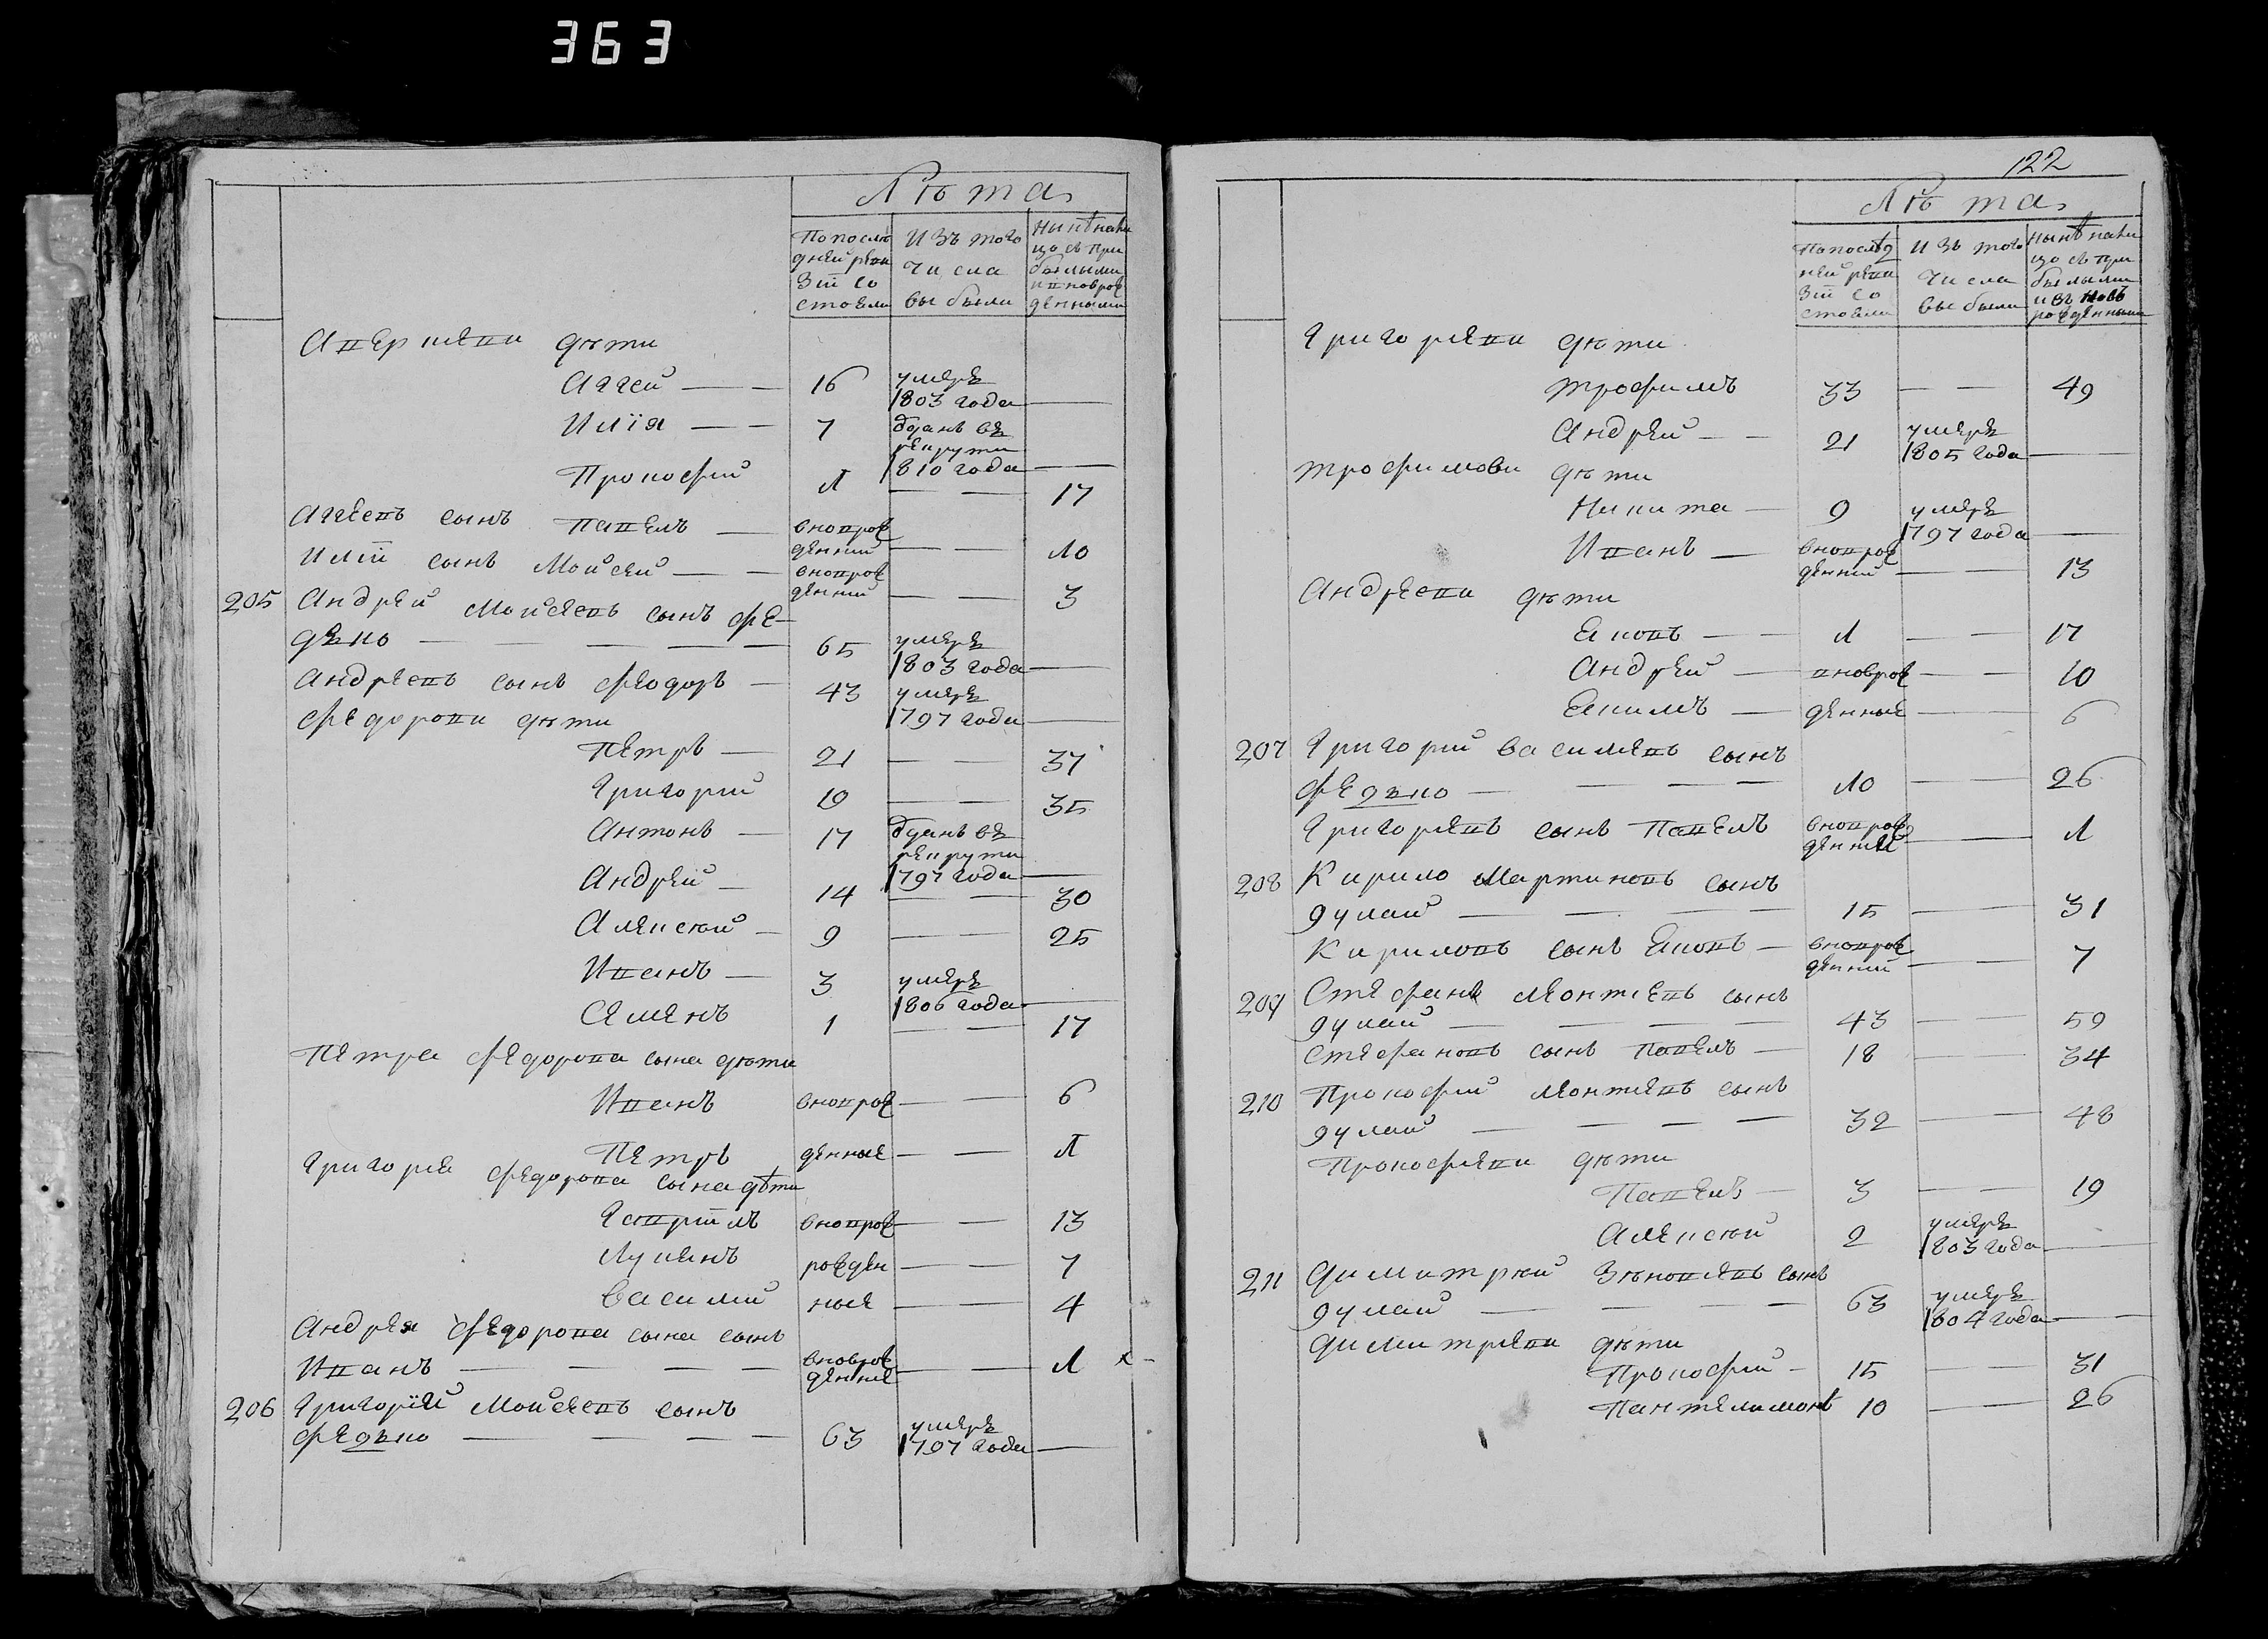 363
Лѣта
По послѣ
дней реви
зіи со
стояли
Изъ того
числа
выбыли
Нынѣ на ли
цо съ при
былыми
и новорож
денными
Аверкіеви дѣти
Аггей — — 16 умеръ
1803 года —
Илія — — 7 отданъ въ
рекруты
1810 года —
Прокофій Л — — 17
Аггеевъ сынъ Павелъ — вновврож
денний — — ло
Иліи сынъ Мойсей — — вновврож
денний — — 3
205 Андрей Мойсеевъ сынъ Фе-
дько — — — — 65 умеръ
1803 года —
Андреевъ сынъ Феодоръ — 43 умеръ
1797 года —
Федорови дѣти
Петръ — 21 — — 37
Григорій 19 — — 35
Антонъ — 17 отданъ въ
рекруты
1797 года —
Андрей — 14 — — 30
Алексѣй — 9 — — 25
Иванъ — 3 умеръ
1806 года —
Семенъ 1 — — 17
Петра Федорова сына дѣти
Иванъ вноврож — — 6
Петръ денные — — Л
Григорія Федорова сына дѣти
Гавріилъ вноврож — — 13
Лукянъ рожден — — 7
Василій ные — — 4
Андрея Федорова сына сынъ
Иванъ — — — — вновврож
денние — — Л
206 Григорій Мойсеевъ сынъ
Федько — — — — 63 умеръ
1797 года —
122
Лѣта
По послѣд
ней реви
зіи со
стояли
Изъ того
числа
выбыли
Нынѣ на ли
цо съ при
былыми
и въ новъ
рожденными
Григорієви дѣти
Трофимъ 33 — — 49
Андрей — — 21 умеръ
1805 года —
Трофимови дѣти
Никита — 9 умеръ
1797 года —
Иванъ — вновврож
денний — — 13
Андрееви дѣти
Яковъ — — Л — — 17
Андрей — вноврож — — 10
Екимъ — денные — — 6
207 Григорій Василіевъ сынъ
Федько — — — ло — — 26
Григоріевъ сынъ Павелъ вновврож
денний — — Л
208 Кирило Мартиновъ сынъ
Дулай — — — — 15 — — 31
Кириловъ сынъ Яковъ — вновврож
денний — — 7
209 Стефанъ Леонтіевъ сынъ
Дулай — — — — 43 — — 59
Стефановъ сынъ Павелъ — 18 — — 34
210 Прокофій Леонтіевъ сынъ
Дулай — — — — 32 — — 48
Прокофіеви дѣти
Павелъ — 3 — — 19
Алексѣй 2 умеръ
1803 года —
211 Димитрій Зѣновіевъ сынъ
Дулай — — — — 63 умеръ
1804 года —
Димитріеви дѣти
Прокофій — 15 — — 31
Пантелимонъ 10 — — 26